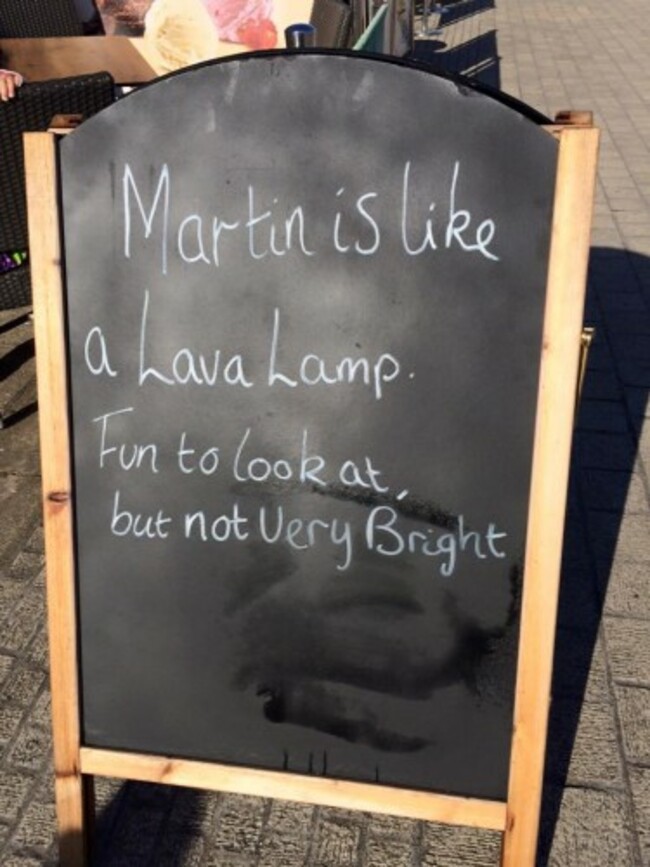 Martin is like
a Lava Lamp.
Fun to look at,
but not Very Bright